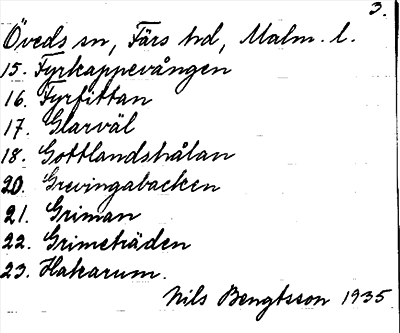 3.
Öveds sn, Färs hd, Malm. l.
15. Fyrkappevången
16. Fyrfittan
17. Glarväl
18. Gottlandshålan
20. Grevingabacken
21. Griman
22. Grimehäden
23. Hakarum.
Nils Bengtsson 1935